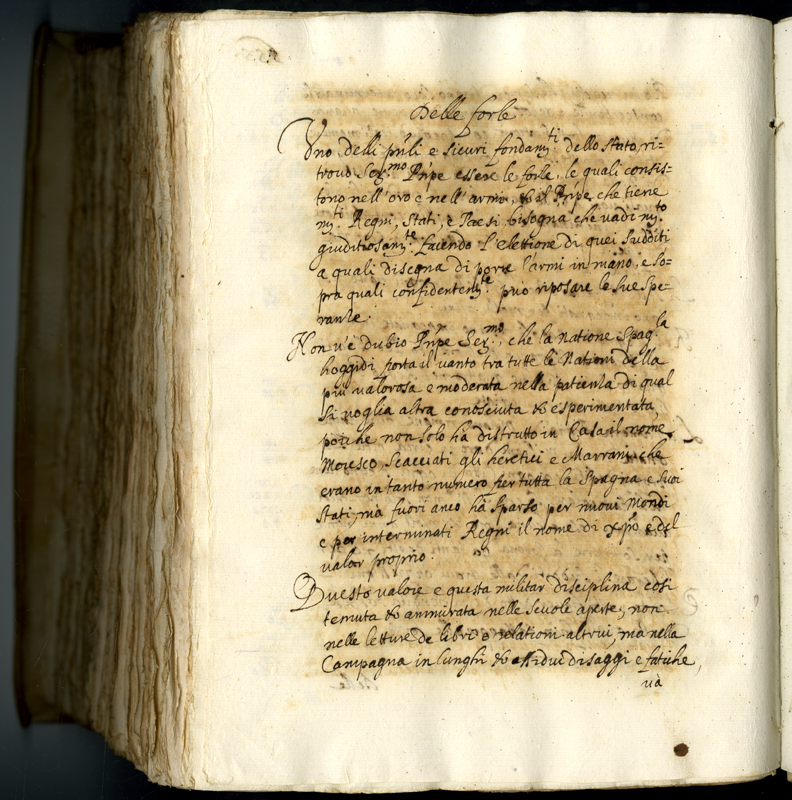 Delle forze
Uno delli pnli e sicuri fondam.ti dello stato, ri=
trovo Ser.mo Pnpe essere le forze, le quali consis=
tono nell'oro e nell'armi, & il Pnpe che tiene
m.ti Regni, Stati, e Paesi bisogna che vadi m.to
giuditiosam.te facendo l'elettione di quei sudditi
a quali disegna di porre l'armi in mano, e so=
pra quali confidentem.te può riposare le sue spe=
ranze.
Non v'è dubio Pnpe Ser.mo, che la natione Spag.la
hoggidì porta il vanto tra tutte le Nationi della
più valorosa e moderata nella patienza di qual
si voglia altra conosciuta & esperimentata,
poiche non solo hà distrutto in Casa il nome
Moresco, scacciati gli heretici e Marrani che
erano in tanto numero per tutta la Spagna e suoi
stati, mà fuori anco hà sparso per nuovi Mondi
e per interminati Regni il nome di Xpo e del
valor proprio.
Questo valore e questa militar disciplina così
temuta & ammirata nelle scuole aperte, non
nelle letture de libri o relationi altrui, mà nella
Campagna in lunghi & assidui disaggi e fatiche,
và